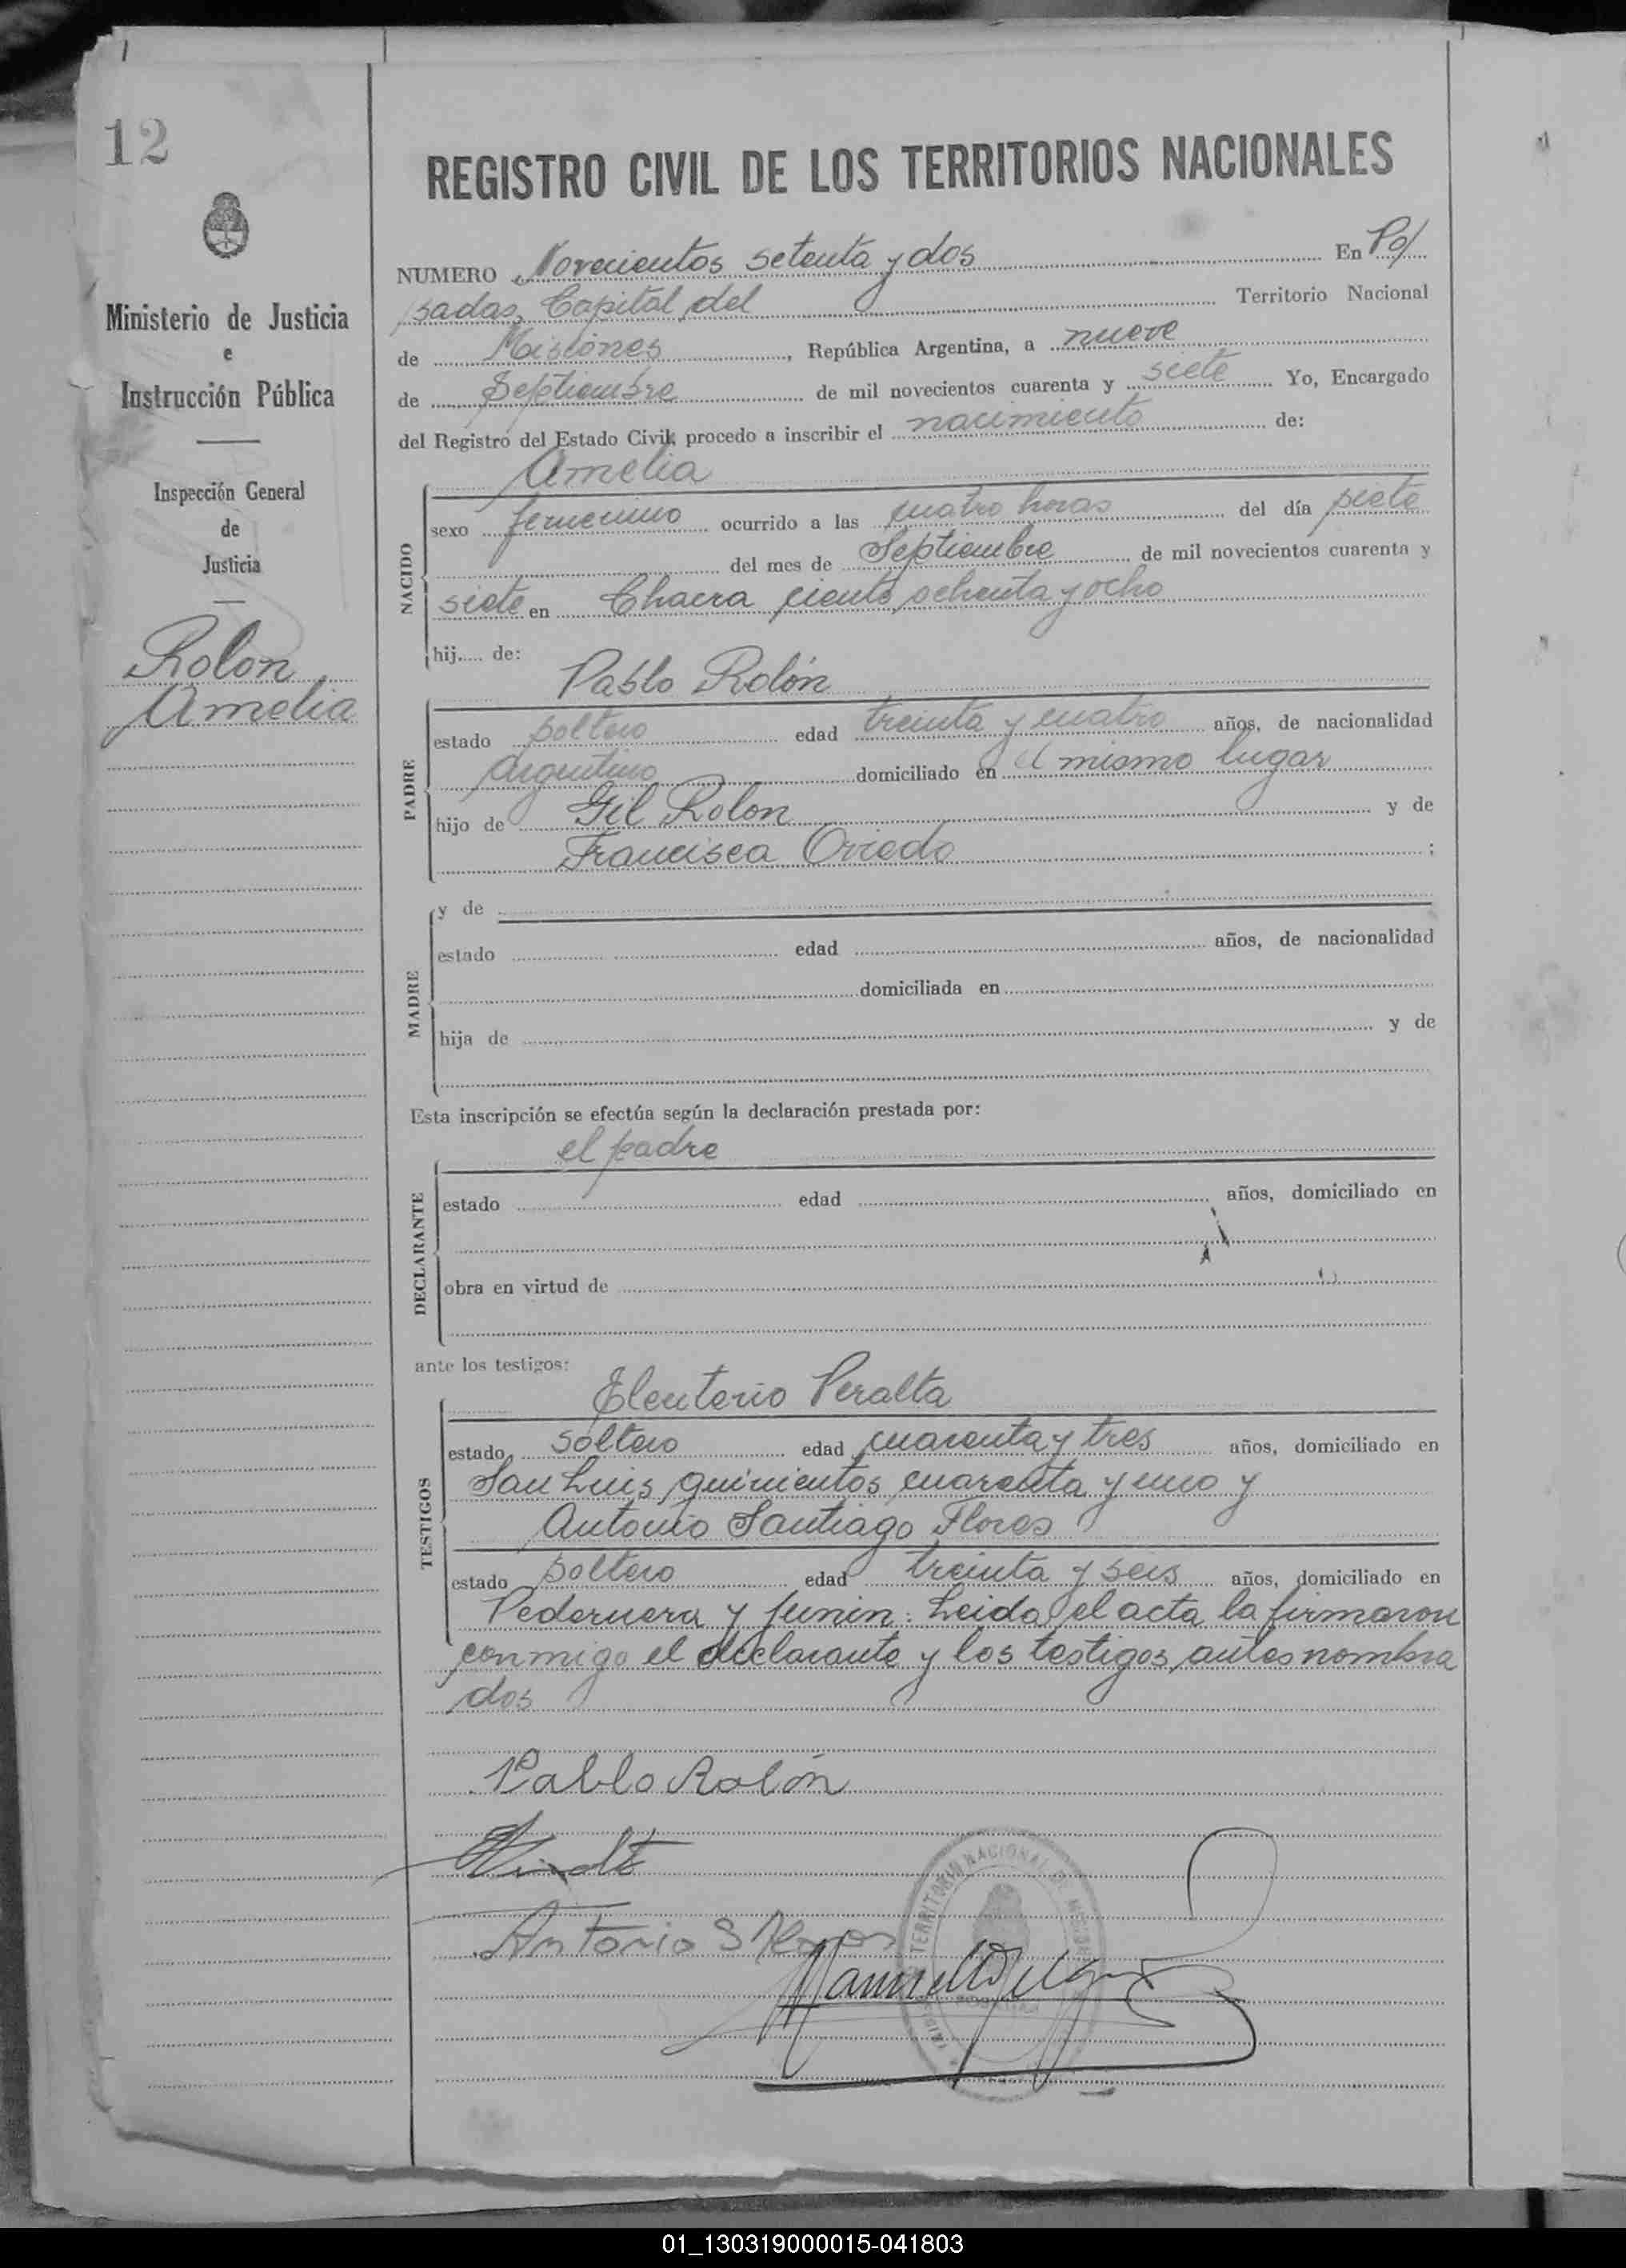 12
Ministerio de Justicia
e
Instrucción Pública
Inspección General
de
Justicia
Rolon
Amelia
REGISTRO CIVIL DE LOS TERRITORIOS NACIONALES
NUMERO Novecientos setenta y dos En Po/
sadas, Capital del Territorio Nacional
de Misiones, República Argentina, a nueve
de Septiembre de mil novecientos cuarenta y siete Yo, Encargado
del Registro del Estado Civil, procedo a inscribir el nacimiento de:
Amelia
NACIDO
sexo femenino ocurrido a las cuatro horas del día siete
del mes de Septiembre de mil novecientos cuarenta y
siete en Chacra ciento ochenta y ocho
hij..... de:
Pablo Rolón
PADRE
estado soltero edad treinta y cuatro años, de nacionalidad
Argentino domiciliado en el mismo lugar
hijo de Gil Rolon y de
Francisca Oviedo ;
MADRE
y de
estado edad años, de nacionalidad
domiciliada en
hija de y de
Esta inscripción se efectúa según la declaración prestada por:
el padre
DECLARANTE
estado edad años, domiciliado en
obra en virtud de
ante los testigos:
Eleuterio Peralta
TESTIGOS
estado soltero edad cuarenta y tres años, domiciliado en
San Luis quinientos cuarenta y uno y
Antonio Santiago Flores
estado soltero edad treinta y seis años, domiciliado en
Pedernera y Junin. Leida el acta la firmaron
conmigo el declarante y los testigos antes nombra
dos
Pablo Rolón
Antonio S Flores
TERRITORIO NACIONAL DE MISIONES
01_130319000015-041803